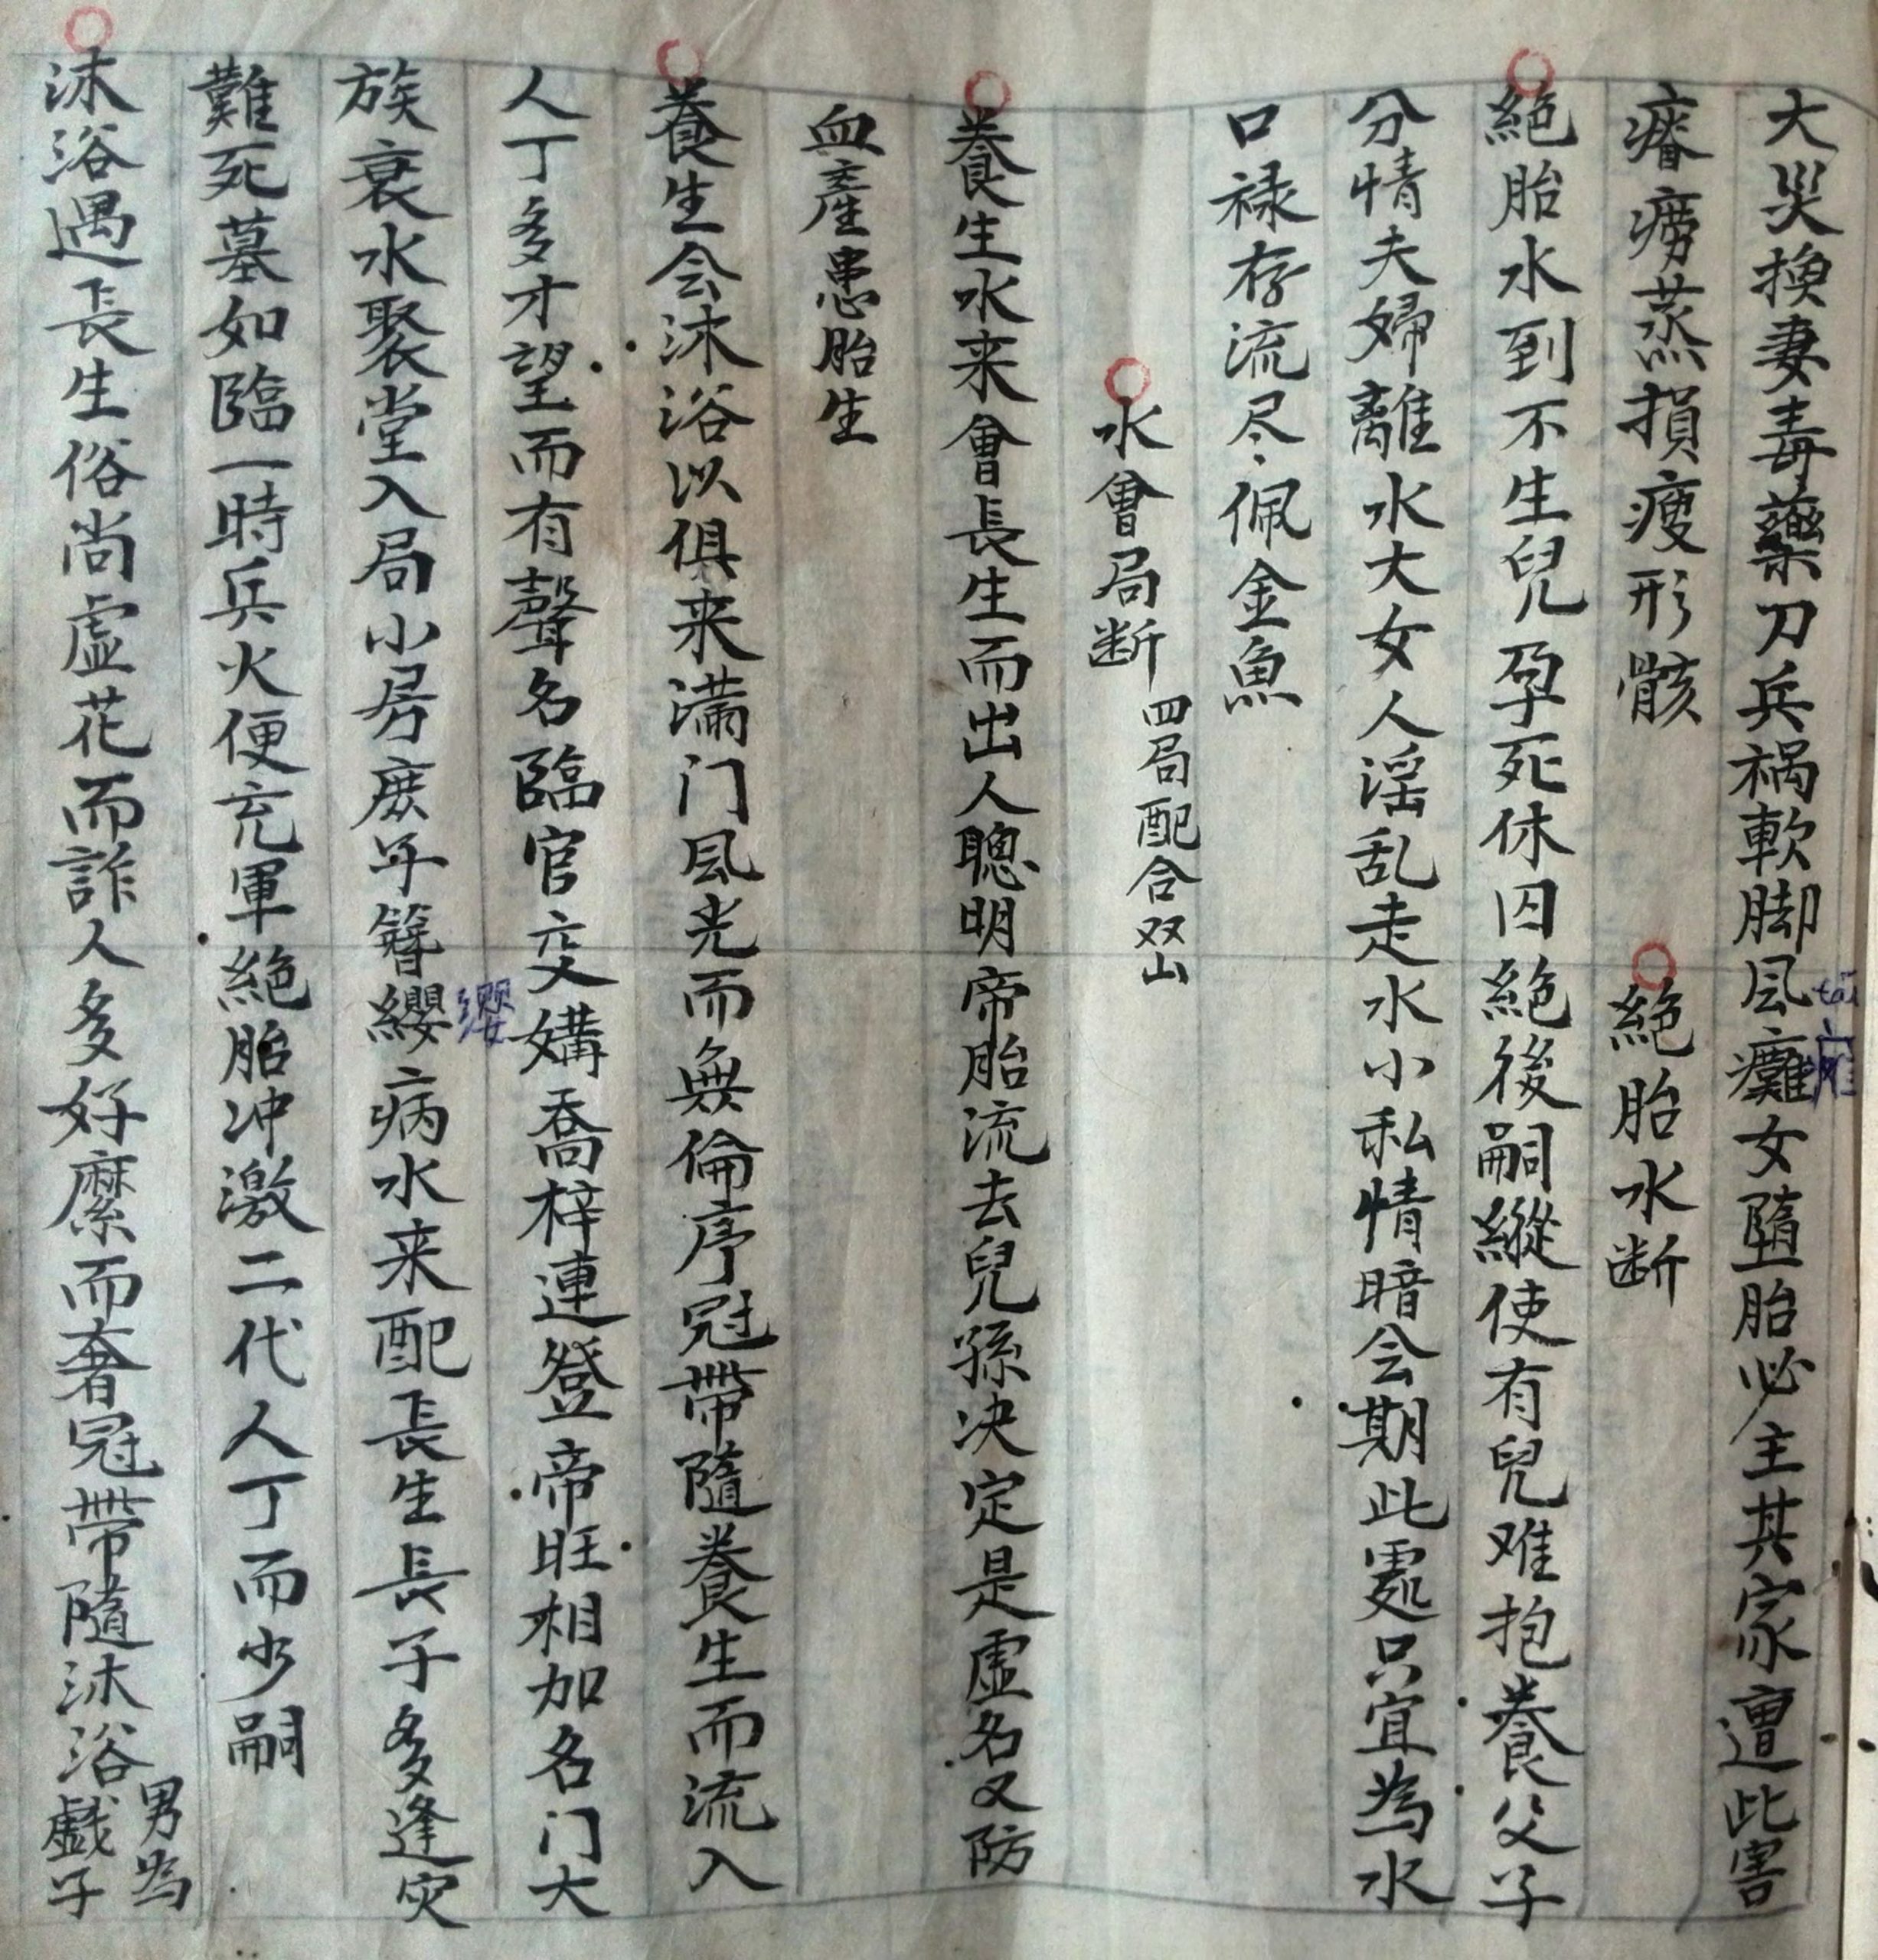 大災換妻毒藥刀兵禍軟脚风癱女墮胎必主其家遭此害
癆蒸損瘦形骸
絕胎水断
絕胎水到不生兒孕死休囚絕後嗣縱使有兒难抱養父子
分情夫婦離水大女人淫乱走水小私情暗会期此處只宜為水
口禄存流尽佩金魚
水會局断
四局配合双山
養生水来會長生而出人聰明帝胎流去兒孫决定是虚名又防
血產患胎生
養生会沐浴以俱来满门风光而無倫序冠帶隨養生而流入
人丁多才望而有聲名臨官交媾喬梓連登帝旺相加名门大
族衰水聚堂入局小房庶年簪纓病水来配長生長子多逢灾
缨
難死墓如臨一時兵火便充軍絕胎冲激二代人丁而少嗣
沐浴遇長生俗尚虚花而詐人多好縻而奢冠帶隨沐浴男為
戲子